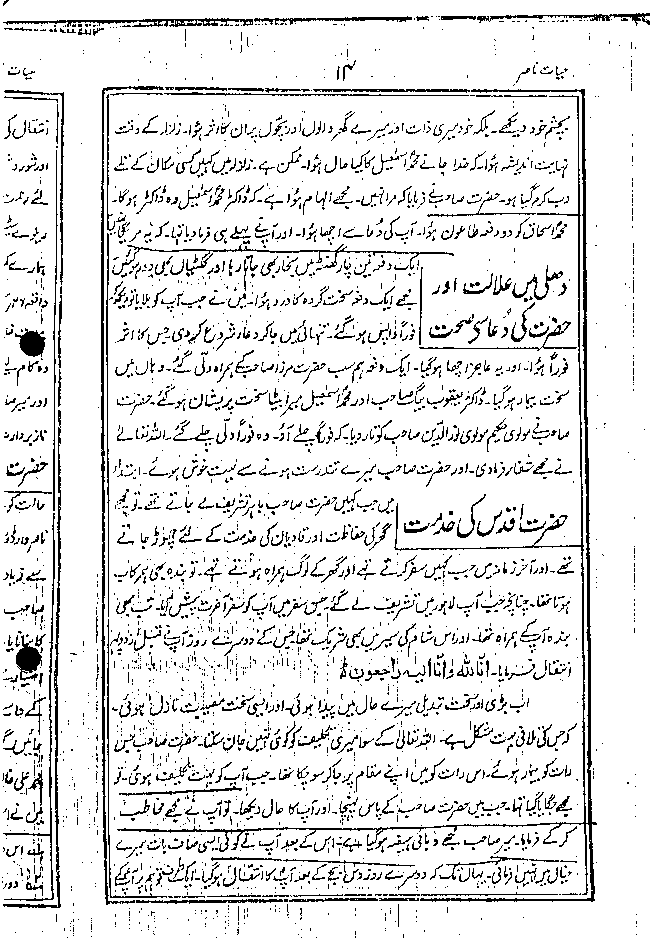 حیات ناصر
۱۴
حیات
بچشم خود دیکھے۔ بلکہ خود میری ذات اور میرے گھر والوں اور بچوں پر ان کا اثر ہؤا۔ زلزلہ کے وقت
نہایت اندیشہ ہؤا۔ کہ خدا جانے محمدؐ اسمٰعیل کا کیا حال ہؤا۔ ممکن ہے۔ زلزلہ میں کہیں کسی مکان کے تلے
دب کر مر گیا ہو۔ حضرت صاحب نے فرمایا کہ مرا نہیں۔ مجھے الہام ہؤا ہے۔ کہ ڈاکٹر محمدؐ اسمٰعیل وہ ڈاکٹر ہوگا۔
محمدؐ اسحاق کو دو دفعہ طاعون ہؤا۔ آپ کی دُعا سے اچھا ہؤا۔ اور آپ نے پہلے ہی فرما دیا تھا۔ کہ یہ مریگا نہیں
دھلی میں علالت اور
حضرت کی دُعا سے صحت
ایک دفعہ تین چار گھنٹہ میں بخار بھی جاتا رہا اور گلٹیاں بھی دور ہوگئیں
مجھے ایک دفعہ سخت گردہ کا درد ہؤا۔ میں نے جب آپ کو بلایا تو دیکھکر
فوراً واپس ہو گئے۔ تنہائی میں جاکر دعا شروع کر دی جس کا اثر
فوراً ہؤا۔ اور یہ عاجز اچھا ہوگیا۔ ایک دفعہ ہم سب حضرت مرزا صاحب کے ہمراہ دلّی گئے۔ وہاں میں
سخت بیمار ہو گیا۔ ڈاکٹر یعقوب بیگ صاحب اور محمدؐ اسمٰعیل میرا بیٹا سخت پریشان ہو گئے۔ حضرت
صاحب نے مولوی حکیم مولوی نور الدین صاحب کو تار دیا۔ کہ فوراً چلے آؤ۔ وہ فوراً دلی چلے گئے۔ اللہ تعالیٰ
نے مجھے شفار فرما دی۔ اور حضرت صاحب میرے تندرست ہونے سے بہت خوش ہوئے۔ ابتدار
حضرت اقدس کی خدمت
میں جب کہیں حضرت صاحب باہر تشریف لے جاتے تھے۔ تو مجھے
گھر کی حفاظت اور قادیان کی خدمت کے لئے چھوڑ جاتے
تھے۔ اور آخر زمانہ میں جب کہیں سفر کرتے تھے اور گھر کے لوگ ہمراہ ہوتے تھے۔ تو بندہ بھی ہمرکاب
ہوتا تھا۔ چنانچہ جب آپ لاہور میں تشریف لے گئے۔ جس سفر میں آپ کو سفر آخرت پیش آیا۔ تب بھی
بندہ آپ کے ہمراہ تھا۔ اور اس شام کی سیر میں بھی شریک تھا جس کے دوسرے روز آپ نے قبل از دوپہر
انتقال فرمایا۔ انّا للہ وانّا الیہ راجعون ؕ
اب بڑی اور سخت تبدیلی میرے حال میں پیدا ہوئی۔ اور ایسی سخت مصیبت نازل ہوئی۔
کہ جس کی تلافی بہت مشکل ہے۔ اللہ تعالیٰ کے سوا میری تکلیف کو کوئی نہیں جان سکتا۔ حضرت صاحب جس
رات کو بیمار ہوئے۔ اس رات کو میں اپنے مقام پر جا کر سو چکا تھا۔ جب آپ کو بہت تکلیف ہوئی۔ تو
مجھے جگایا گیا تھا۔ جب میں حضرت صاحب کے پاس پہنچا۔ اور آپ کا حال دیکھا۔ تو آپ نے مجھے مخاطب
کر کے فرمایا۔ میر صاحب مجھے وبائی ہیضہ ہو گیا ہے۔ اس کے بعد آپ نے کوئی ایسی صاف بات میرے
خیال میں نہیں فرمائی۔ یہاں تک کہ دوسرے روز دس بجے کے بعد آپ کا انتقال ہو گیا۔